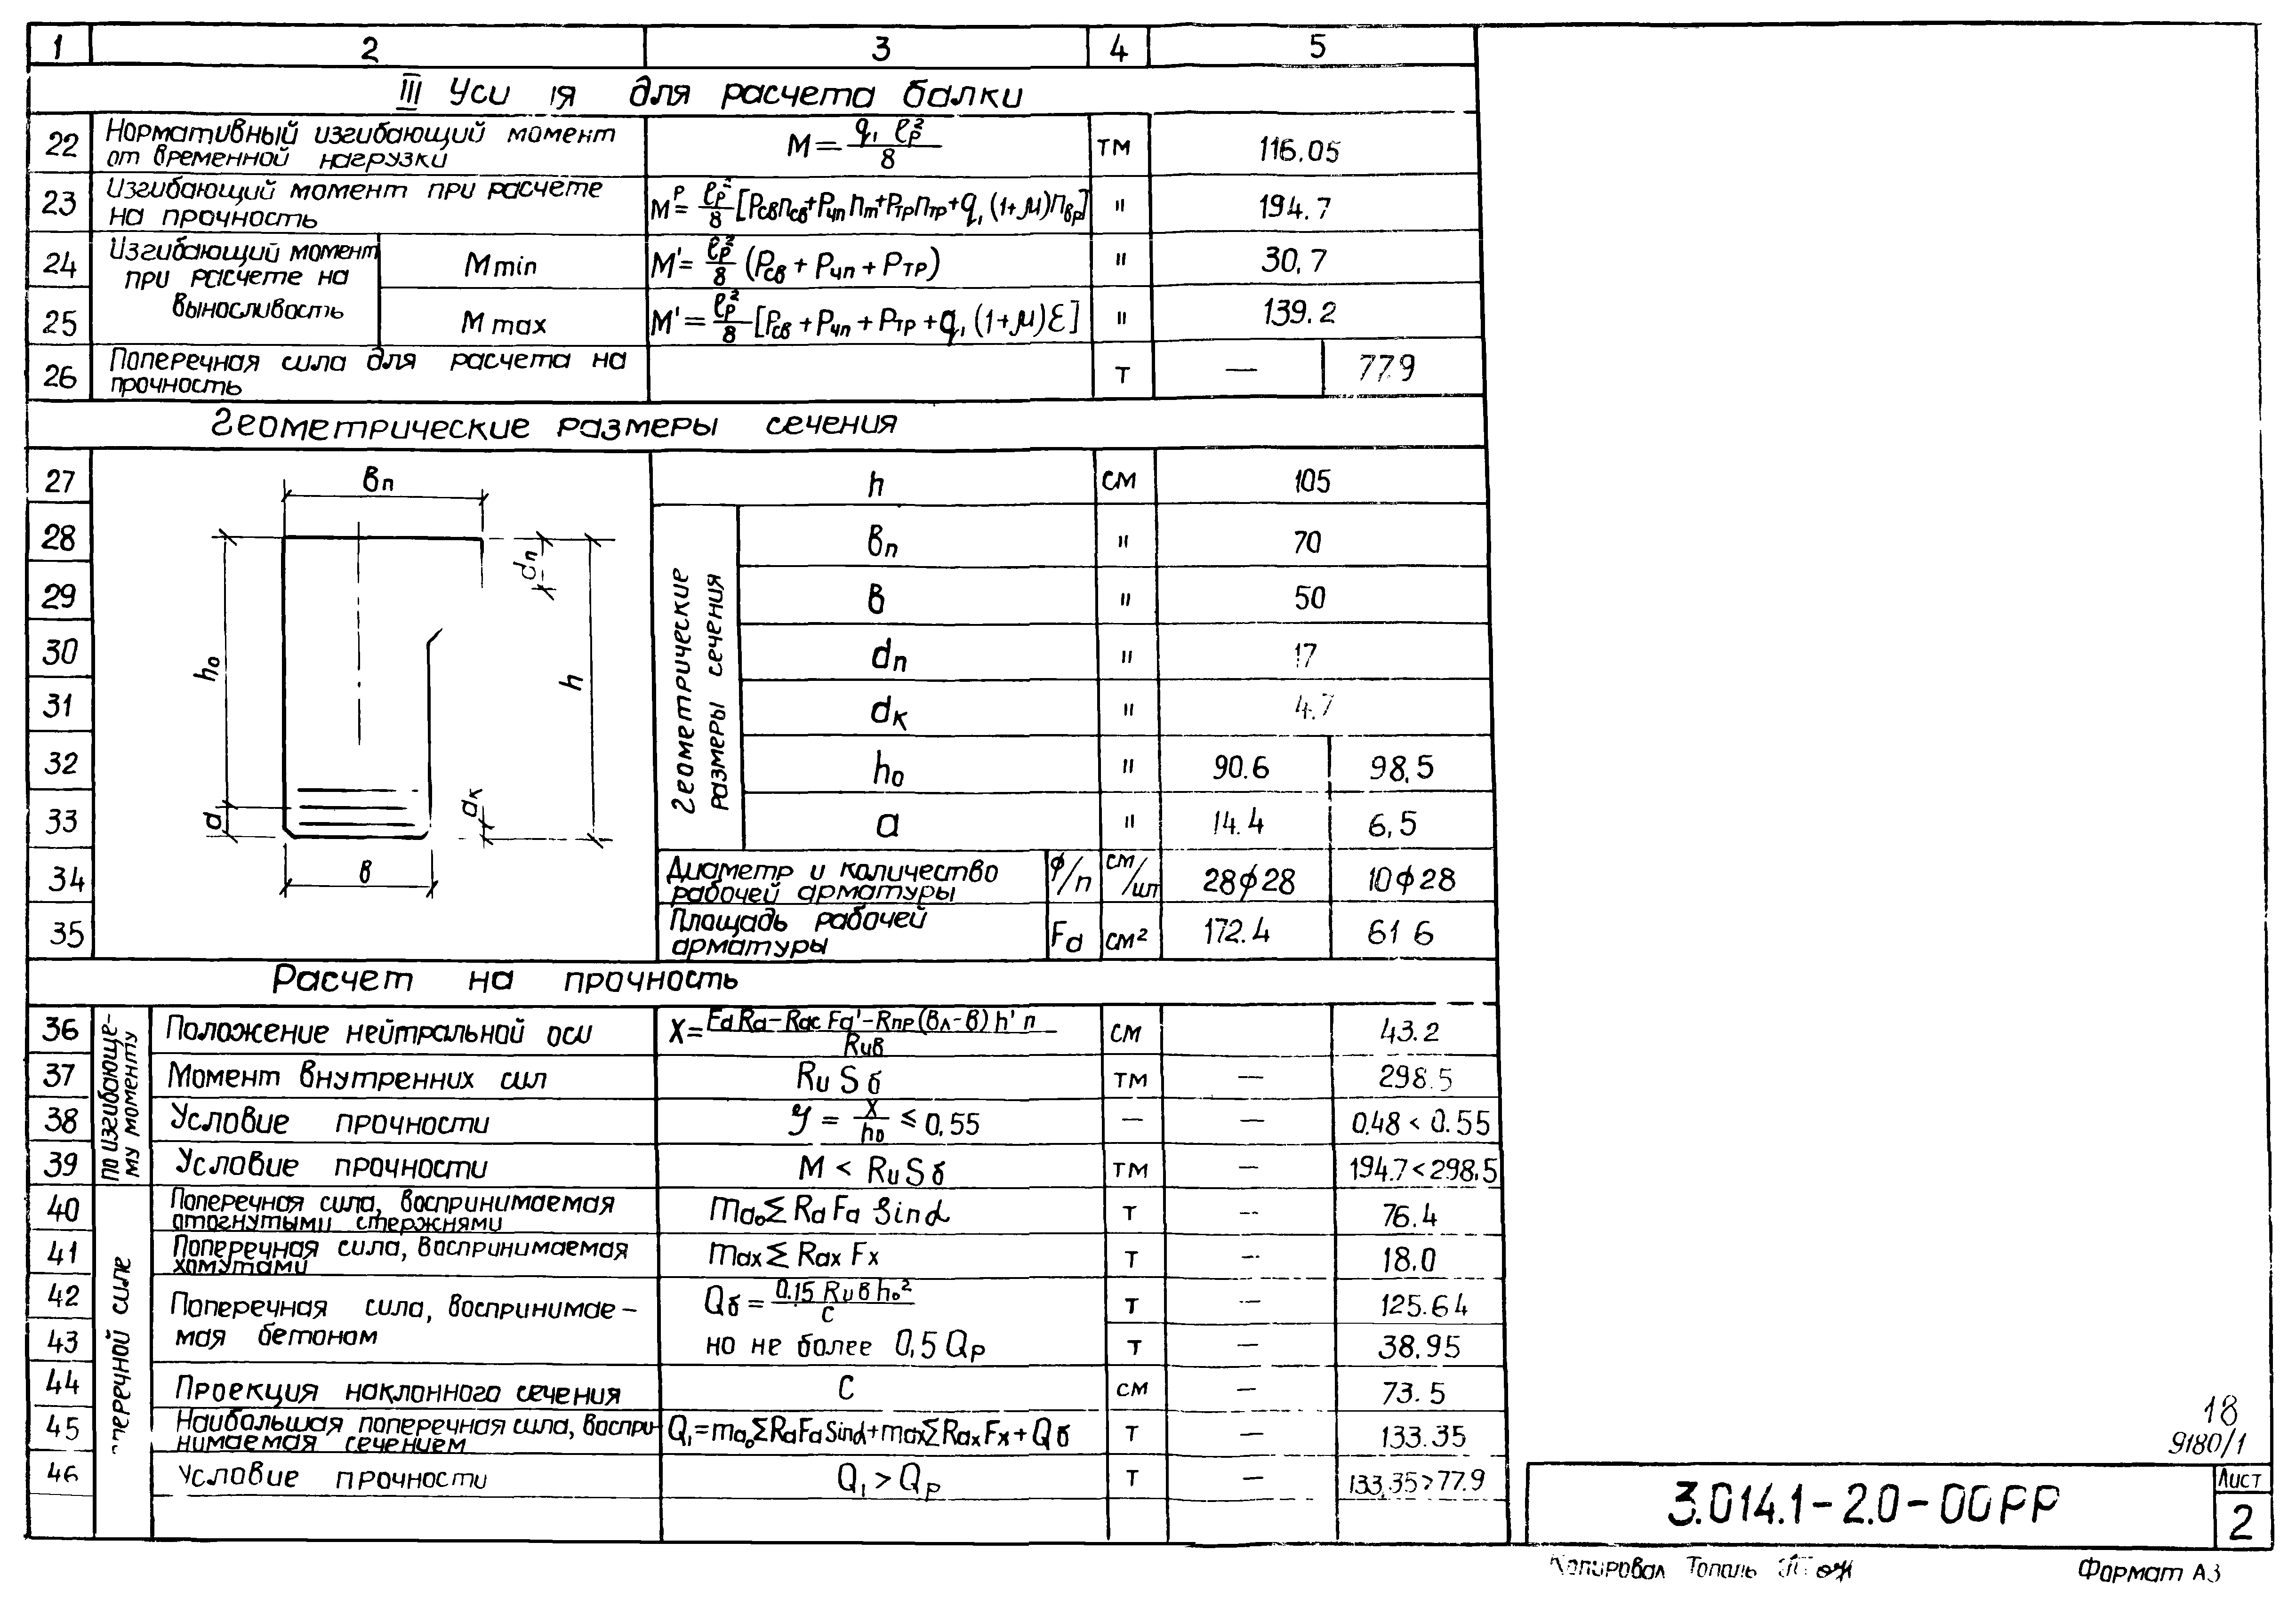 1 2 3 4 5
III Уси ия для расчета балки
22 Нормативный изгибающий момент от временной нагрузки M = q₁ ℓр² / 8 тм 116.05
23 Изгибающий момент при расчете на прочность Mᴾ = ℓр²/8 [Pсв nсв + Pчп nт + Pтр nтр + q₁ (1+μ) nвр] " 194.7
Изгибающий момент при расчете на выносливость
24 M min M' = ℓр²/8 (Pсв + Pчп + Pтр) " 30,7
25 M max M' = ℓр²/8 [Pсв + Pчп + Pтр + q₁ (1+μ) Ɛ] " 139.2
26 Поперечная сила для расчета на прочность т — 77.9
Геометрические размеры сечения
вп
h₀
dп
h
а
dк
в
Геометрические размеры сечения
27 h см 105
28 вп " 70
29 в " 50
30 dп " 17
31 dк " 4.7
32 h₀ " 90.6 98,5
33 а " 14.4 6,5
34 Диаметр и количество рабочей арматуры ϕ/п см/шт 28ϕ28 10ϕ28
35 Площадь рабочей арматуры Fа см² 172.4 61 6
Расчет на прочность
По изгибающе-
му моменту
36 Положение нейтральной оси X = Fа Rа – Rас Fа' – Rпр (вп – в) h' п / Rи в см 43.2
37 Момент внутренних сил Rи S б тм — 298.5
38 Условие прочности У = X / h₀ ≤ 0,55 — — 0.48 < 0.55
39 Условие прочности M < Rи S б тм — 194.7 < 298,5
перечной силе
40 Поперечная сила, воспринимаемая отогнутыми стержнями mа₀ Σ Rа Fа Sin α т — 76.4
41 Поперечная сила, воспринимаемая хомутами mах Σ Rах Fх т — 18.0
42 Поперечная сила, воспринимае- Qб = 0.15 Rи в h₀² / c т — 125.64
43 мая бетоном но не более 0,5 Qр т — 38.95
44 Проекция наклонного сечения С см — 73.5
45 Наибольшая поперечная сила, воспри-нимаемая сечением Q₁ = mа₀ Σ Rа Fа Sin α + mах Σ Rах Fх + Q б т — 133.35
46 Условие прочности Q₁ > Qр т — 133,35 > 77.9
18
9180/1
3.014.1-2.0-00РР
Лист
2
Копировал Тополь
Формат А3